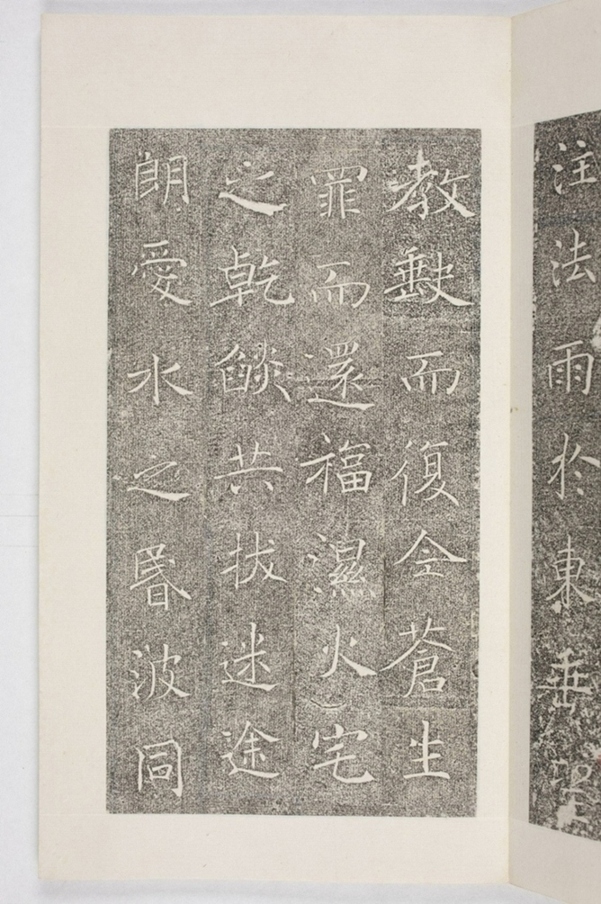 注法雨扵東垂
教𡙇而復全蒼生
罪而還福濕火宅
之乾燄共拔迷途
朗愛水之昬波同